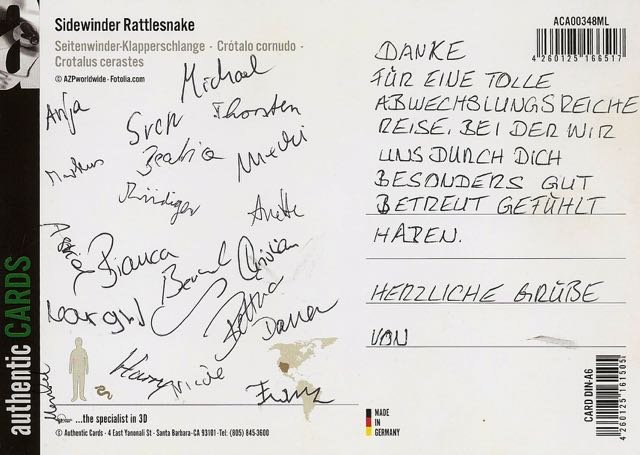 Sidewinder Rattlesnake
Seitenwinder-Klapperschlange · Crótalo cornudo ·
Crotalus cerastes
© AZPworldwide · Fotolia.com
Michael
Anja
Sven
Thorsten
Markus
Beatrix
Rüdiger
Anette
Bianca
Bernd
Christian
Bettina
Harry
Nicole
Franz
authentic CARDS
...the specialist in 3D
© Authentic Cards · 4 East Yanonali St · Santa Barbara-CA 93101 · Tel: (805) 845-3600
ACA00348ML
4 260125 166517
DANKE
FÜR EINE TOLLE
ABWECHSLUNGSREICHE
REISE, BEI DER WIR
UNS DURCH DICH
BESONDERS GUT
BETREUT GEFÜHLT
HABEN.
HERZLICHE GRÜßE
VON
MADE
IN
GERMANY
CARD DIN-A6
4 260125 161505